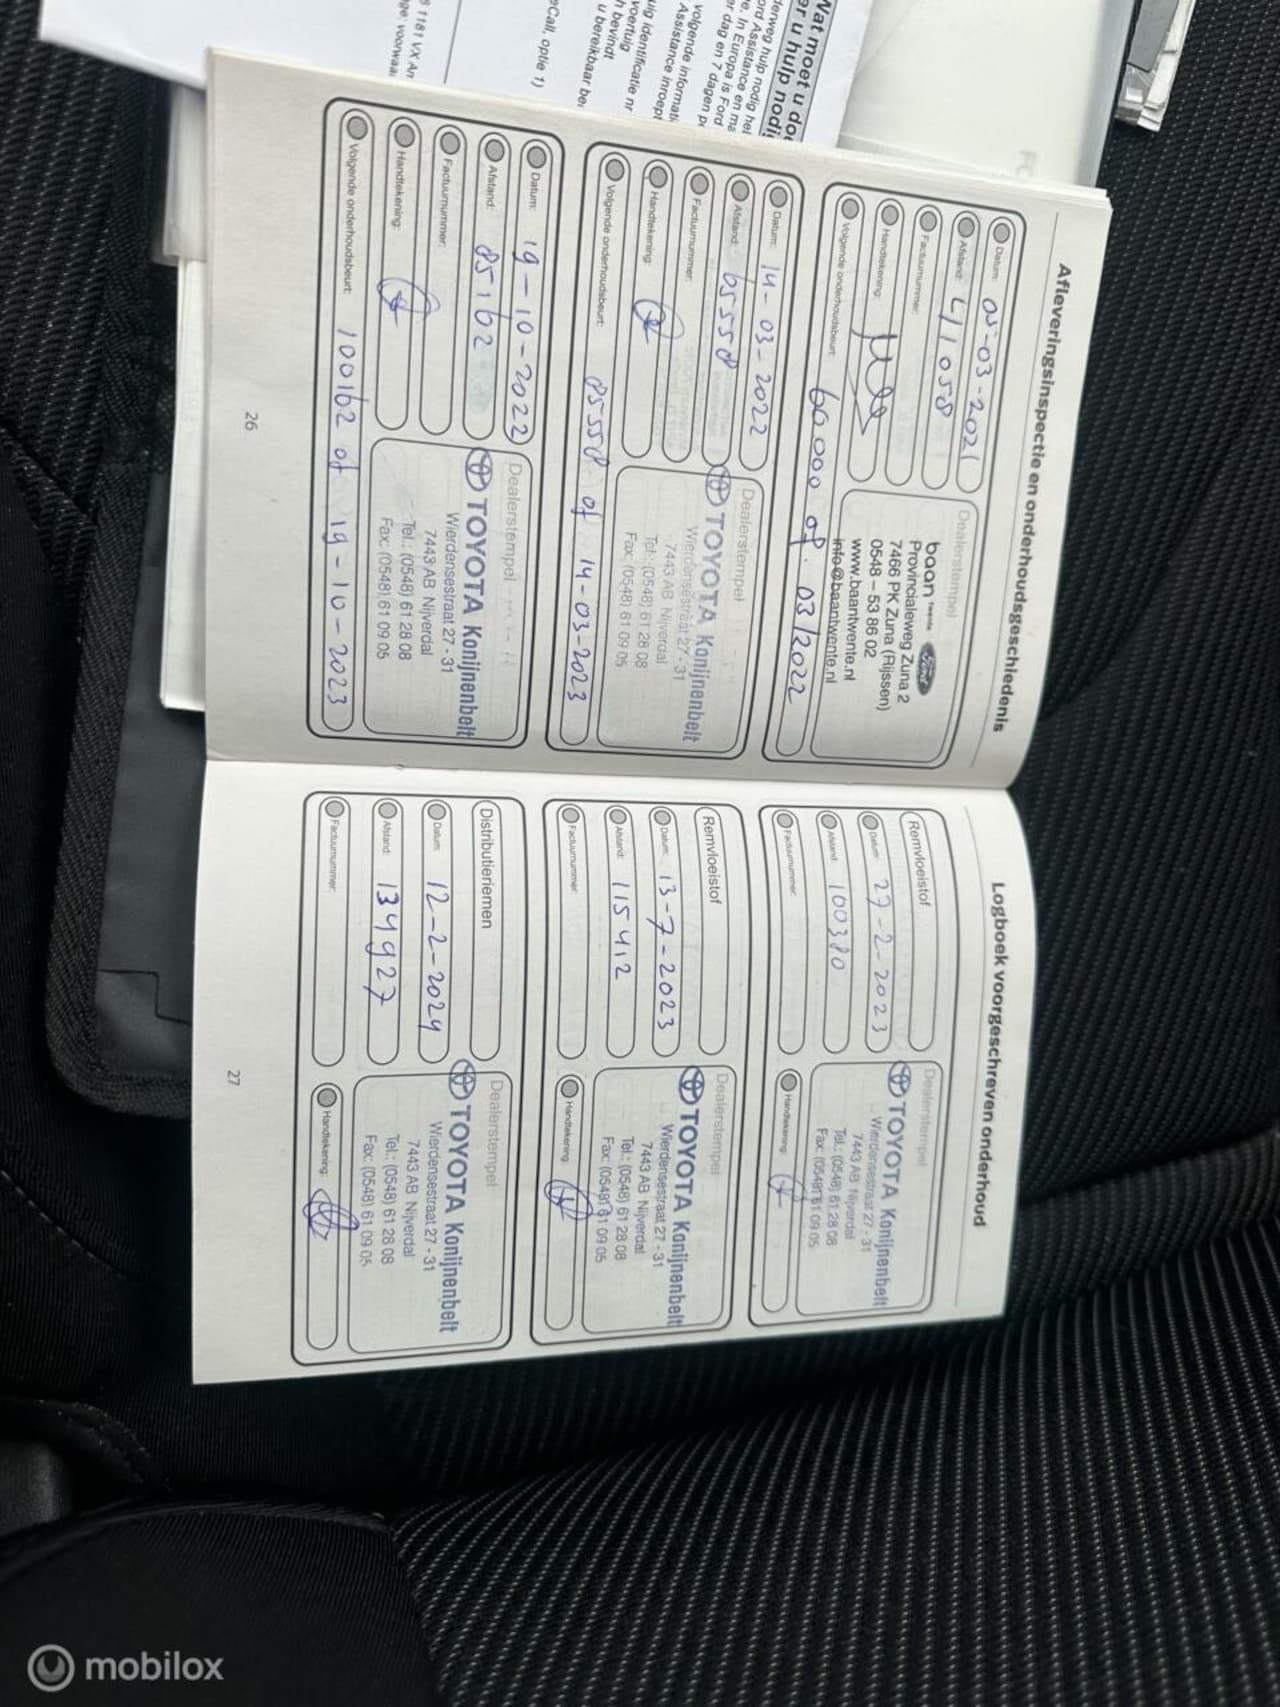 Wat moet u doe
er u hulp nodi
derweg hulp nodig he
ord Assistance en ma
e. In Europa is Ford
er dag en 7 dagen p
volgende informati
Assistance inroept
uig identificatie nr
voertuig
h bevindt
u bereikbaar be
eCall, optie 1)
1181 VX Am
ge: voorwaar
Afleveringsinspectie en onderhoudsgeschiedenis
Datum: 05-03-2021
Afstand: 41058
Factuurnummer:
Handtekening:
Volgende onderhoudsbeurt: 60000 of. 03/2022
Dealerstempel
baan twente Ford
Provincialeweg Zuna 2
7466 PK Zuna (Rijssen)
0548 – 53 86 02
www.baantwente.nl
info@baantwente.nl
Datum: 14-03-2022
Afstand: 65558
Factuurnummer:
Handtekening:
Volgende onderhoudsbeurt: 85558 of 14-03-2023
Dealerstempel
TOYOTA Konijnenbelt
Wierdensestraat 27 - 31
7443 AB Nijverdal
Tel.: (0548) 61 28 08
Fax: (0548) 61 09 05
Datum: 19-10-2022
Afstand: 85162
Factuurnummer:
Handtekening:
Volgende onderhoudsbeurt: 100162 of 19-10-2023
Dealerstempel
TOYOTA Konijnenbelt
Wierdensestraat 27 - 31
7443 AB Nijverdal
Tel.: (0548) 61 28 08
Fax: (0548) 61 09 05
26
Logboek voorgeschreven onderhoud
Remvloeistof
Datum: 27-2-2023
Afstand: 100380
Factuurnummer:
Dealerstempel
TOYOTA Konijnenbelt
Wierdensestraat 27 - 31
7443 AB Nijverdal
Tel.: (0548) 61 28 08
Fax: (0548) 61 09 05
Handtekening:
Remvloeistof
Datum: 13-7-2023
Afstand: 115412
Factuurnummer:
Dealerstempel
TOYOTA Konijnenbelt
Wierdensestraat 27 - 31
7443 AB Nijverdal
Tel.: (0548) 61 28 08
Fax: (0548) 61 09 05
Handtekening:
Distributieriemen
Datum: 12-2-2024
Afstand: 134927
Factuurnummer:
Dealerstempel
TOYOTA Konijnenbelt
Wierdensestraat 27 - 31
7443 AB Nijverdal
Tel.: (0548) 61 28 08
Fax: (0548) 61 09 05
Handtekening:
27
mobilox